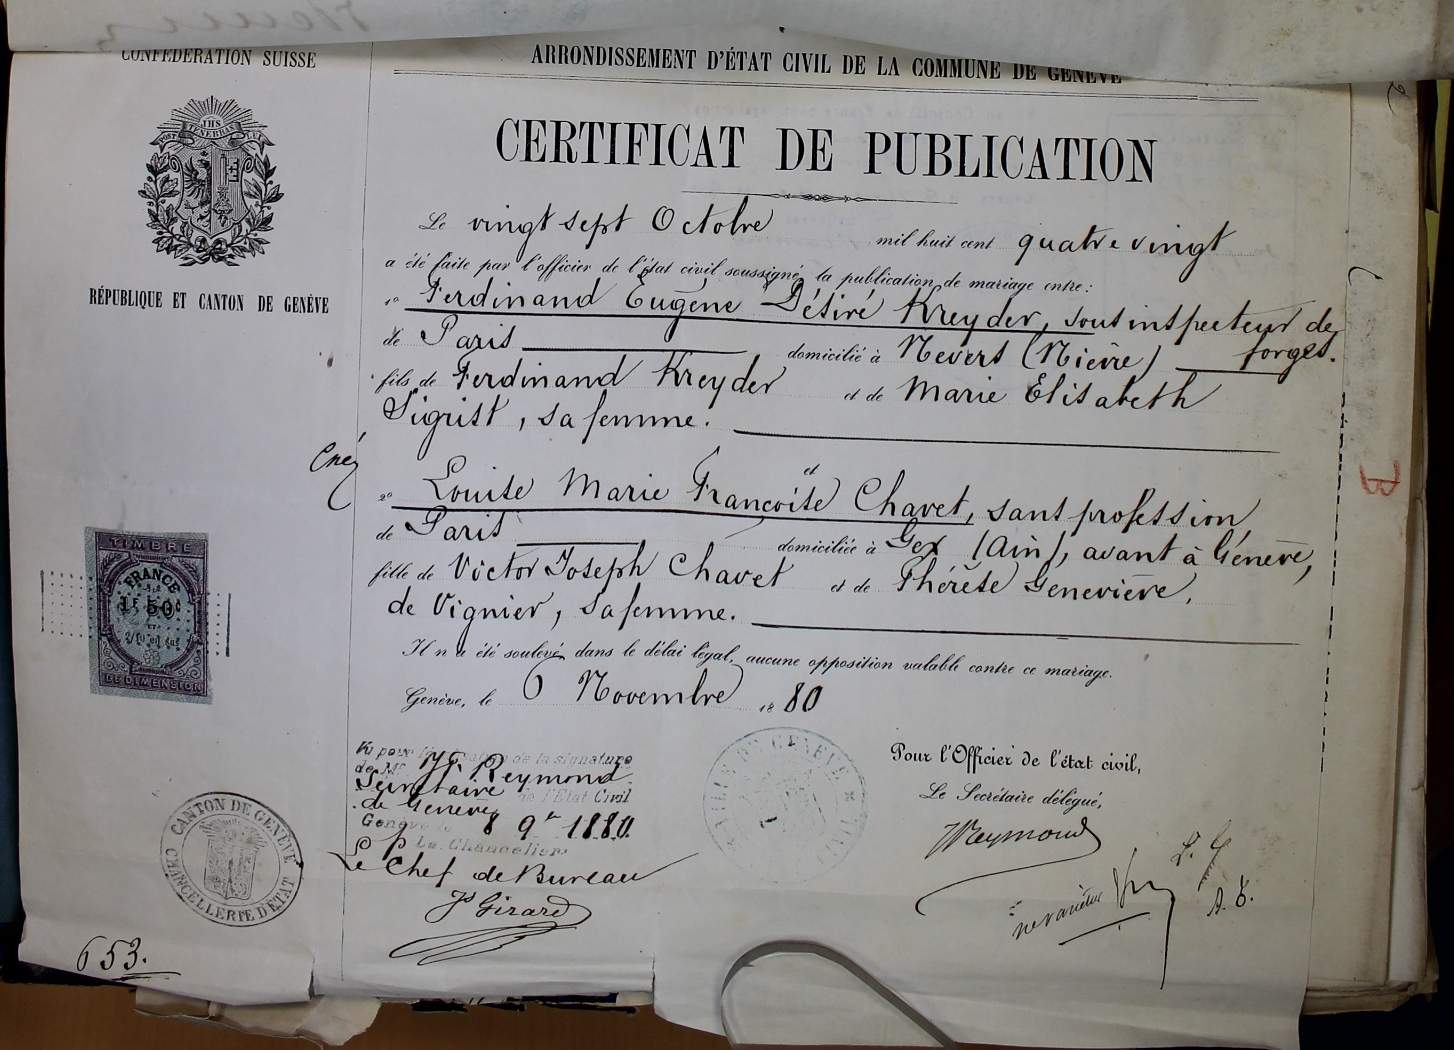 CONFÉDÉRATION SUISSE
ARRONDISSEMENT D'ÉTAT CIVIL DE LA COMMUNE DE GENÈVE
POST TENEBRAS LUX
IHS
RÉPUBLIQUE ET CANTON DE GENÈVE
CERTIFICAT DE PUBLICATION
Le vingt sept Octobre mil huit cent quatre vingt
a été faite par l'officier de l'état civil soussigné la publication de mariage entre:
1º Ferdinand Eugène Désiré Kreyder, sous inspecteur de
forges.
de Paris domicilié à Nevers (Nièvre)
fils de Ferdinand Kreyder et de Marie Elisabeth
Sigrist, sa femme.
et
2º Louise Marie Françoise Chavet, sans profession,
de Paris domiciliée à Gex (Ain), avant à Genève,
fille de Victor Joseph Chavet et de Thérèse Geneviève,
de Vignier, sa femme.
Il n'a été soulevé dans le délai légal, aucune opposition valable contre ce mariage.
Genève, le 6 Novembre 1880
TIMBRE
FRANCE
1F 50c
DE DIMENSION
Vu pour légalisation de la signature
de Mr Reymond
Secrétaire de l'Etat Civil
de Genève
Genève le 8 9bre 1880.
p Le Chancelier
Le Chef de Bureau
Js Girard
VILLE DE GENÈVE
Pour l'Officier de l'état civil,
Le Secrétaire délégué,
Reymond
ne varietur
A. G.
CANTON DE GENÈVE
CHANCELLERIE D'ÉTAT
653.
B